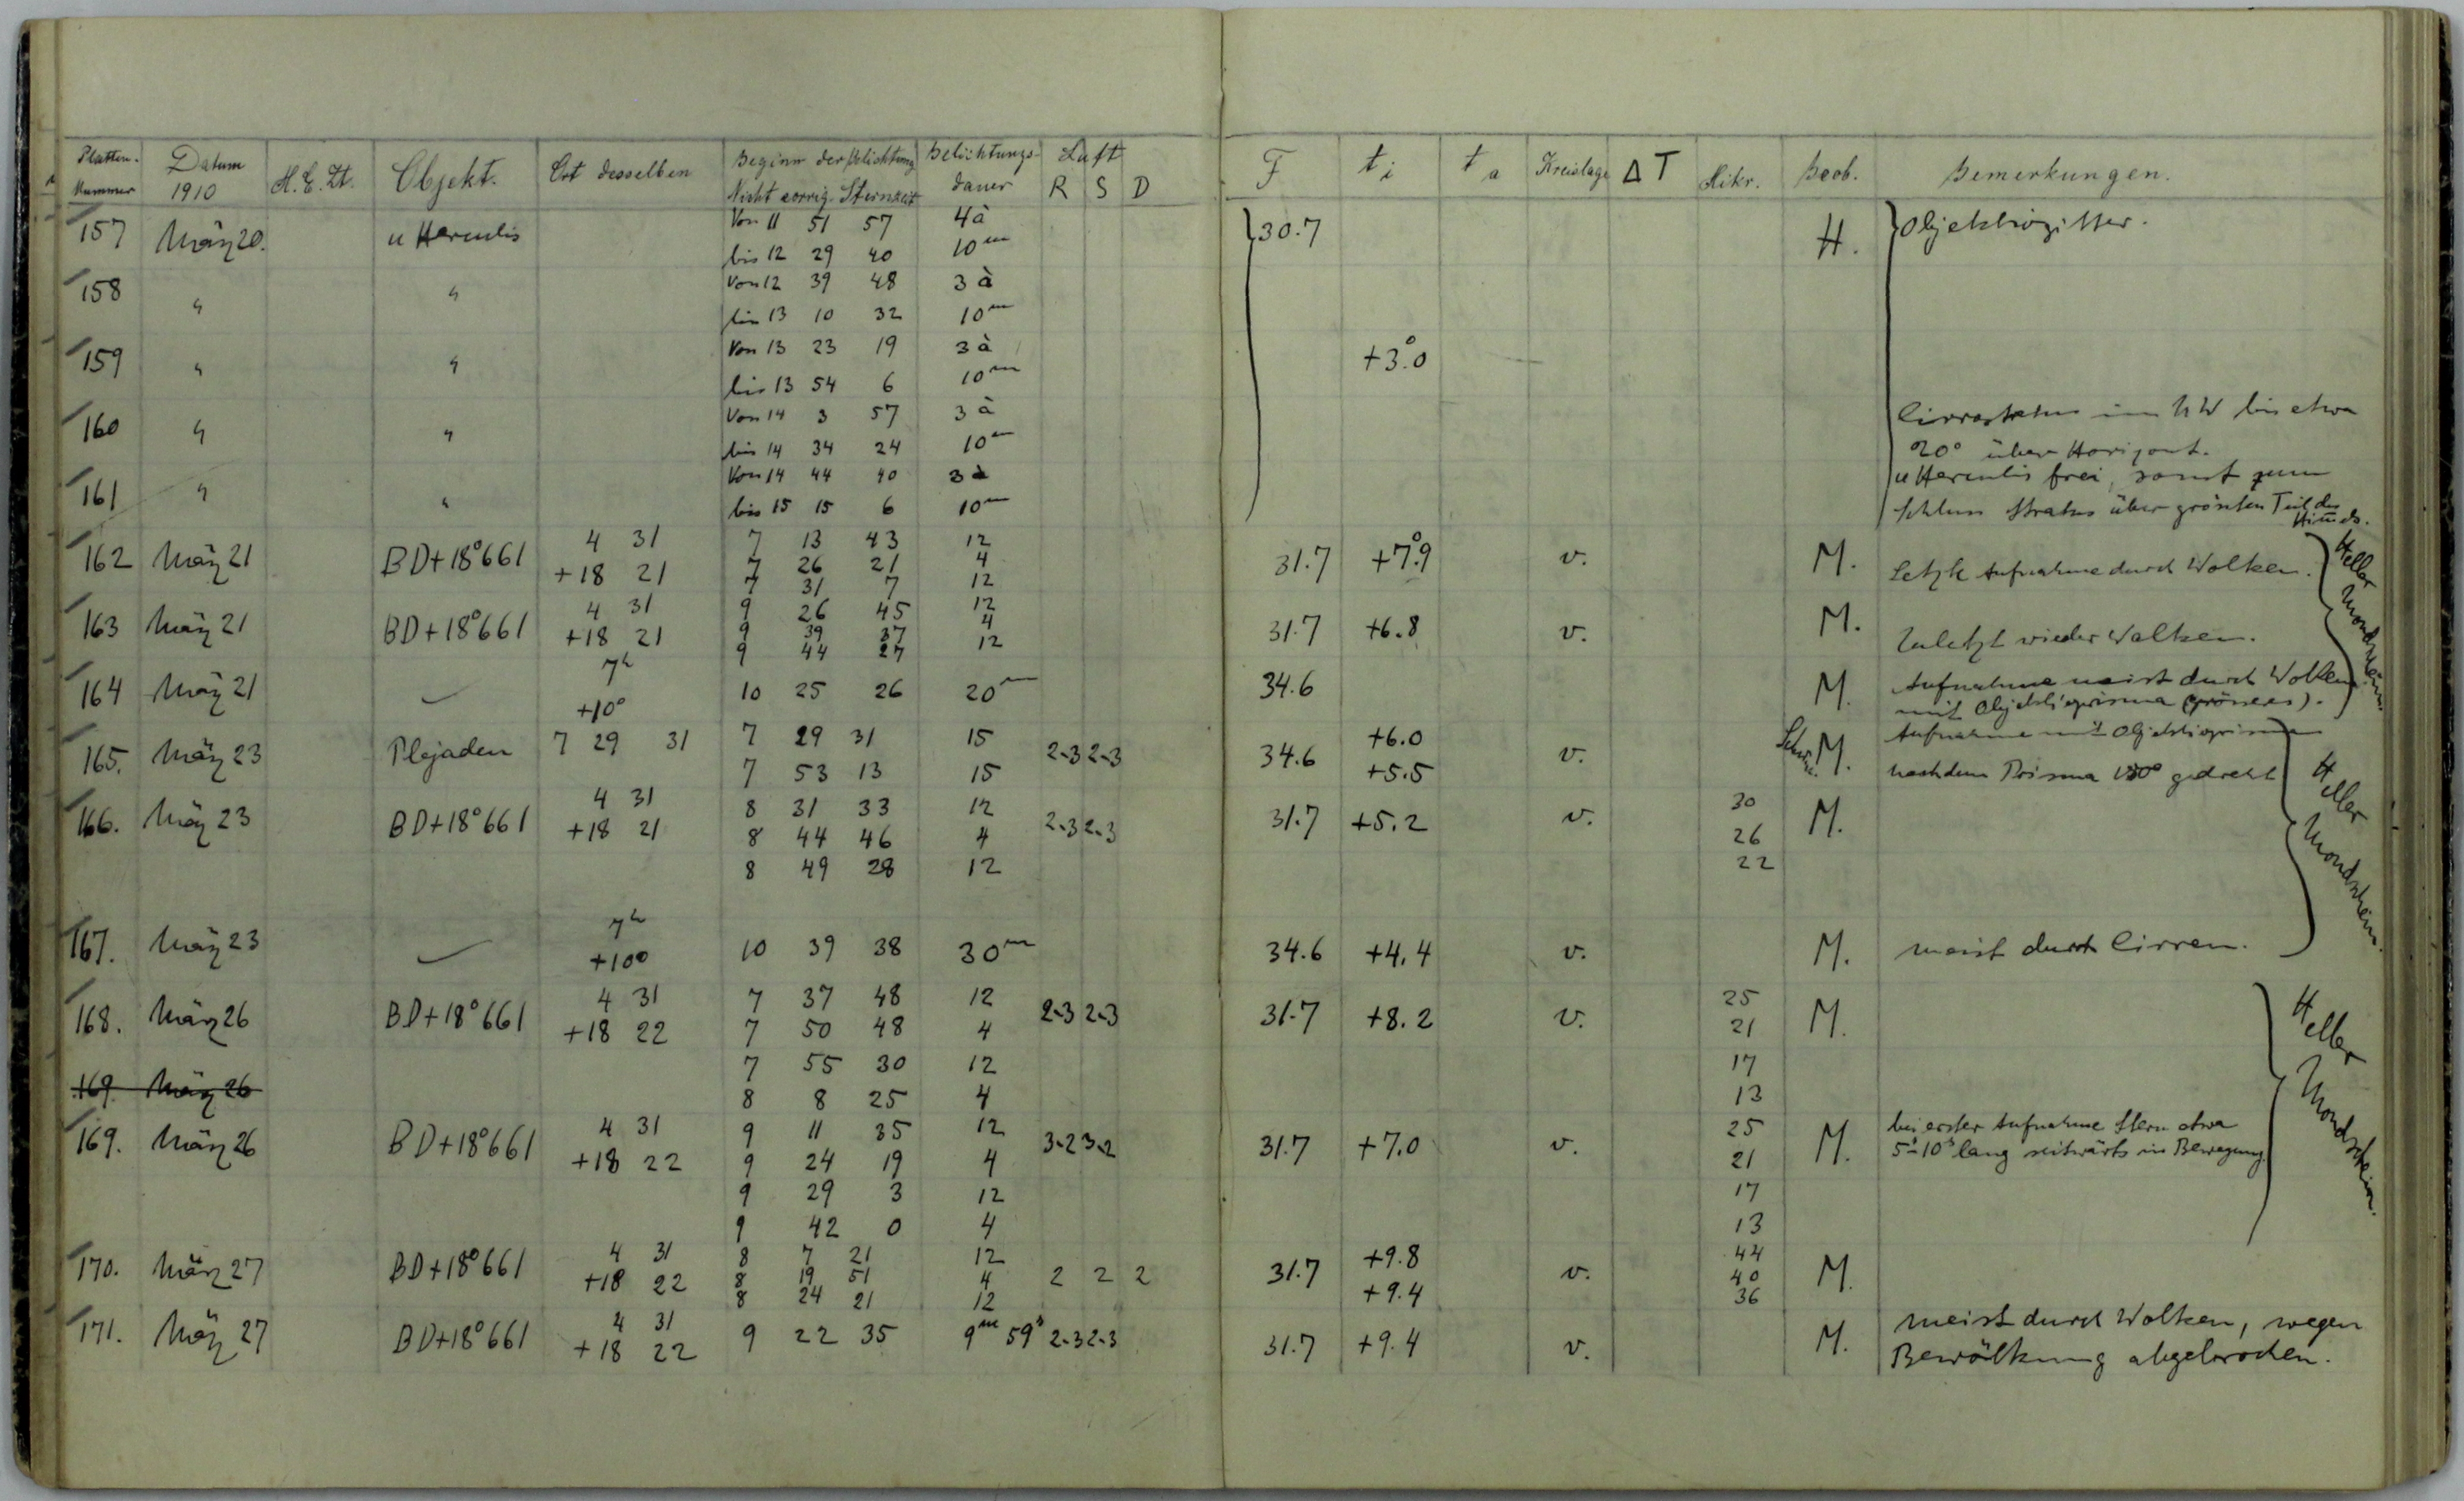 Platten- Nummer Datum 1910 M.E.Zt. Objekt. Ort desselben Beginn der Belichtung Nicht corrig. Sternzeit Belichtungs- dauer Luft R S D F t i t a Kreislage Δ T Mikr. Beob. Bemerkungen.
157 März 20. u Herculis Von 11 51 57 4 à 30.7 H. Objektivgitter.
bis 12 29 40 10 m
158 " " Von 12 39 48 3 à
bis 13 10 32 10 m
159 " " Von 13 23 19 3 à +3.°0
bis 13 54 6 10 m
160 " " Von 14 3 57 3 à Cirrostratus im NW bis etwa
bis 14 34 24 10 m 20° über Horizont.
161 " " Von 14 44 40 3 à u Herculis frei, sonst zum
bis 15 15 6 10 m Schluss Stratus über grössten Teil des Him̅els.
162 März 21 BD+18°661 4 31 7 13 43 12 31.7 +7.°9 v. M. Letzte Aufnahme durch Wolken.
+18 21 7 26 21 4
7 31 7 12
163 März 21 BD+18°661 4 31 9 26 45 12 31.7 +6.8 v. M. Zuletzt wieder Wolken.
+18 21 9 39 37 4
9 44 27 12
Heller Mondschein
164 März 21 7h 10 25 26 20 m 34.6 M. Aufnahme meist durch Wolken
+10° mit Objektivprisma (grösseres).
165. März 23 Plejaden 7 29 31 7 29 31 15 2-3 2-3 34.6 +6.0 v. M. Aufnahme mit Objektivprisma
7 53 13 15 +5.5 nachdem Prisma 180° gedreht
166. März 23 BD+18°661 4 31 8 31 33 12 2-3 2-3 31.7 +5.2 v. 30 M.
+18 21 8 44 46 4 26
8 49 28 12 22
Heller Mondschein.
167. März 23 7h 10 39 38 30 m 34.6 +4.4 v. M. meist durch Cirren.
+10°
168. März 26 BD+18°661 4 31 7 37 48 12 2-3 2-3 31.7 +8.2 v. 25 M.
+18 22 7 50 48 4 21
7 55 30 12 17
169. März 26 8 8 25 4 13
169. März 26 BD+18°661 4 31 9 11 35 12 3-2 3-2 31.7 +7.0 v. 25 M. bei erster Aufnahme Stern etwa
+18 22 9 24 19 4 21 5s-10s lang seitwärts in Bewegung.
9 29 3 12 17
9 42 0 4 13
Heller Mondschein.
170. März 27 BD+18°661 4 31 8 7 21 12 2 2 2 31.7 +9.8 v. 44 M.
+18 22 8 19 51 4 +9.4 40
8 24 21 12 36
171. März 27 BD+18°661 4 31 9 22 35 9m 59s 2-3 2-3 31.7 +9.4 v. M. meist durch Wolken, wegen
+18 22 Bewölkung abgebrochen.